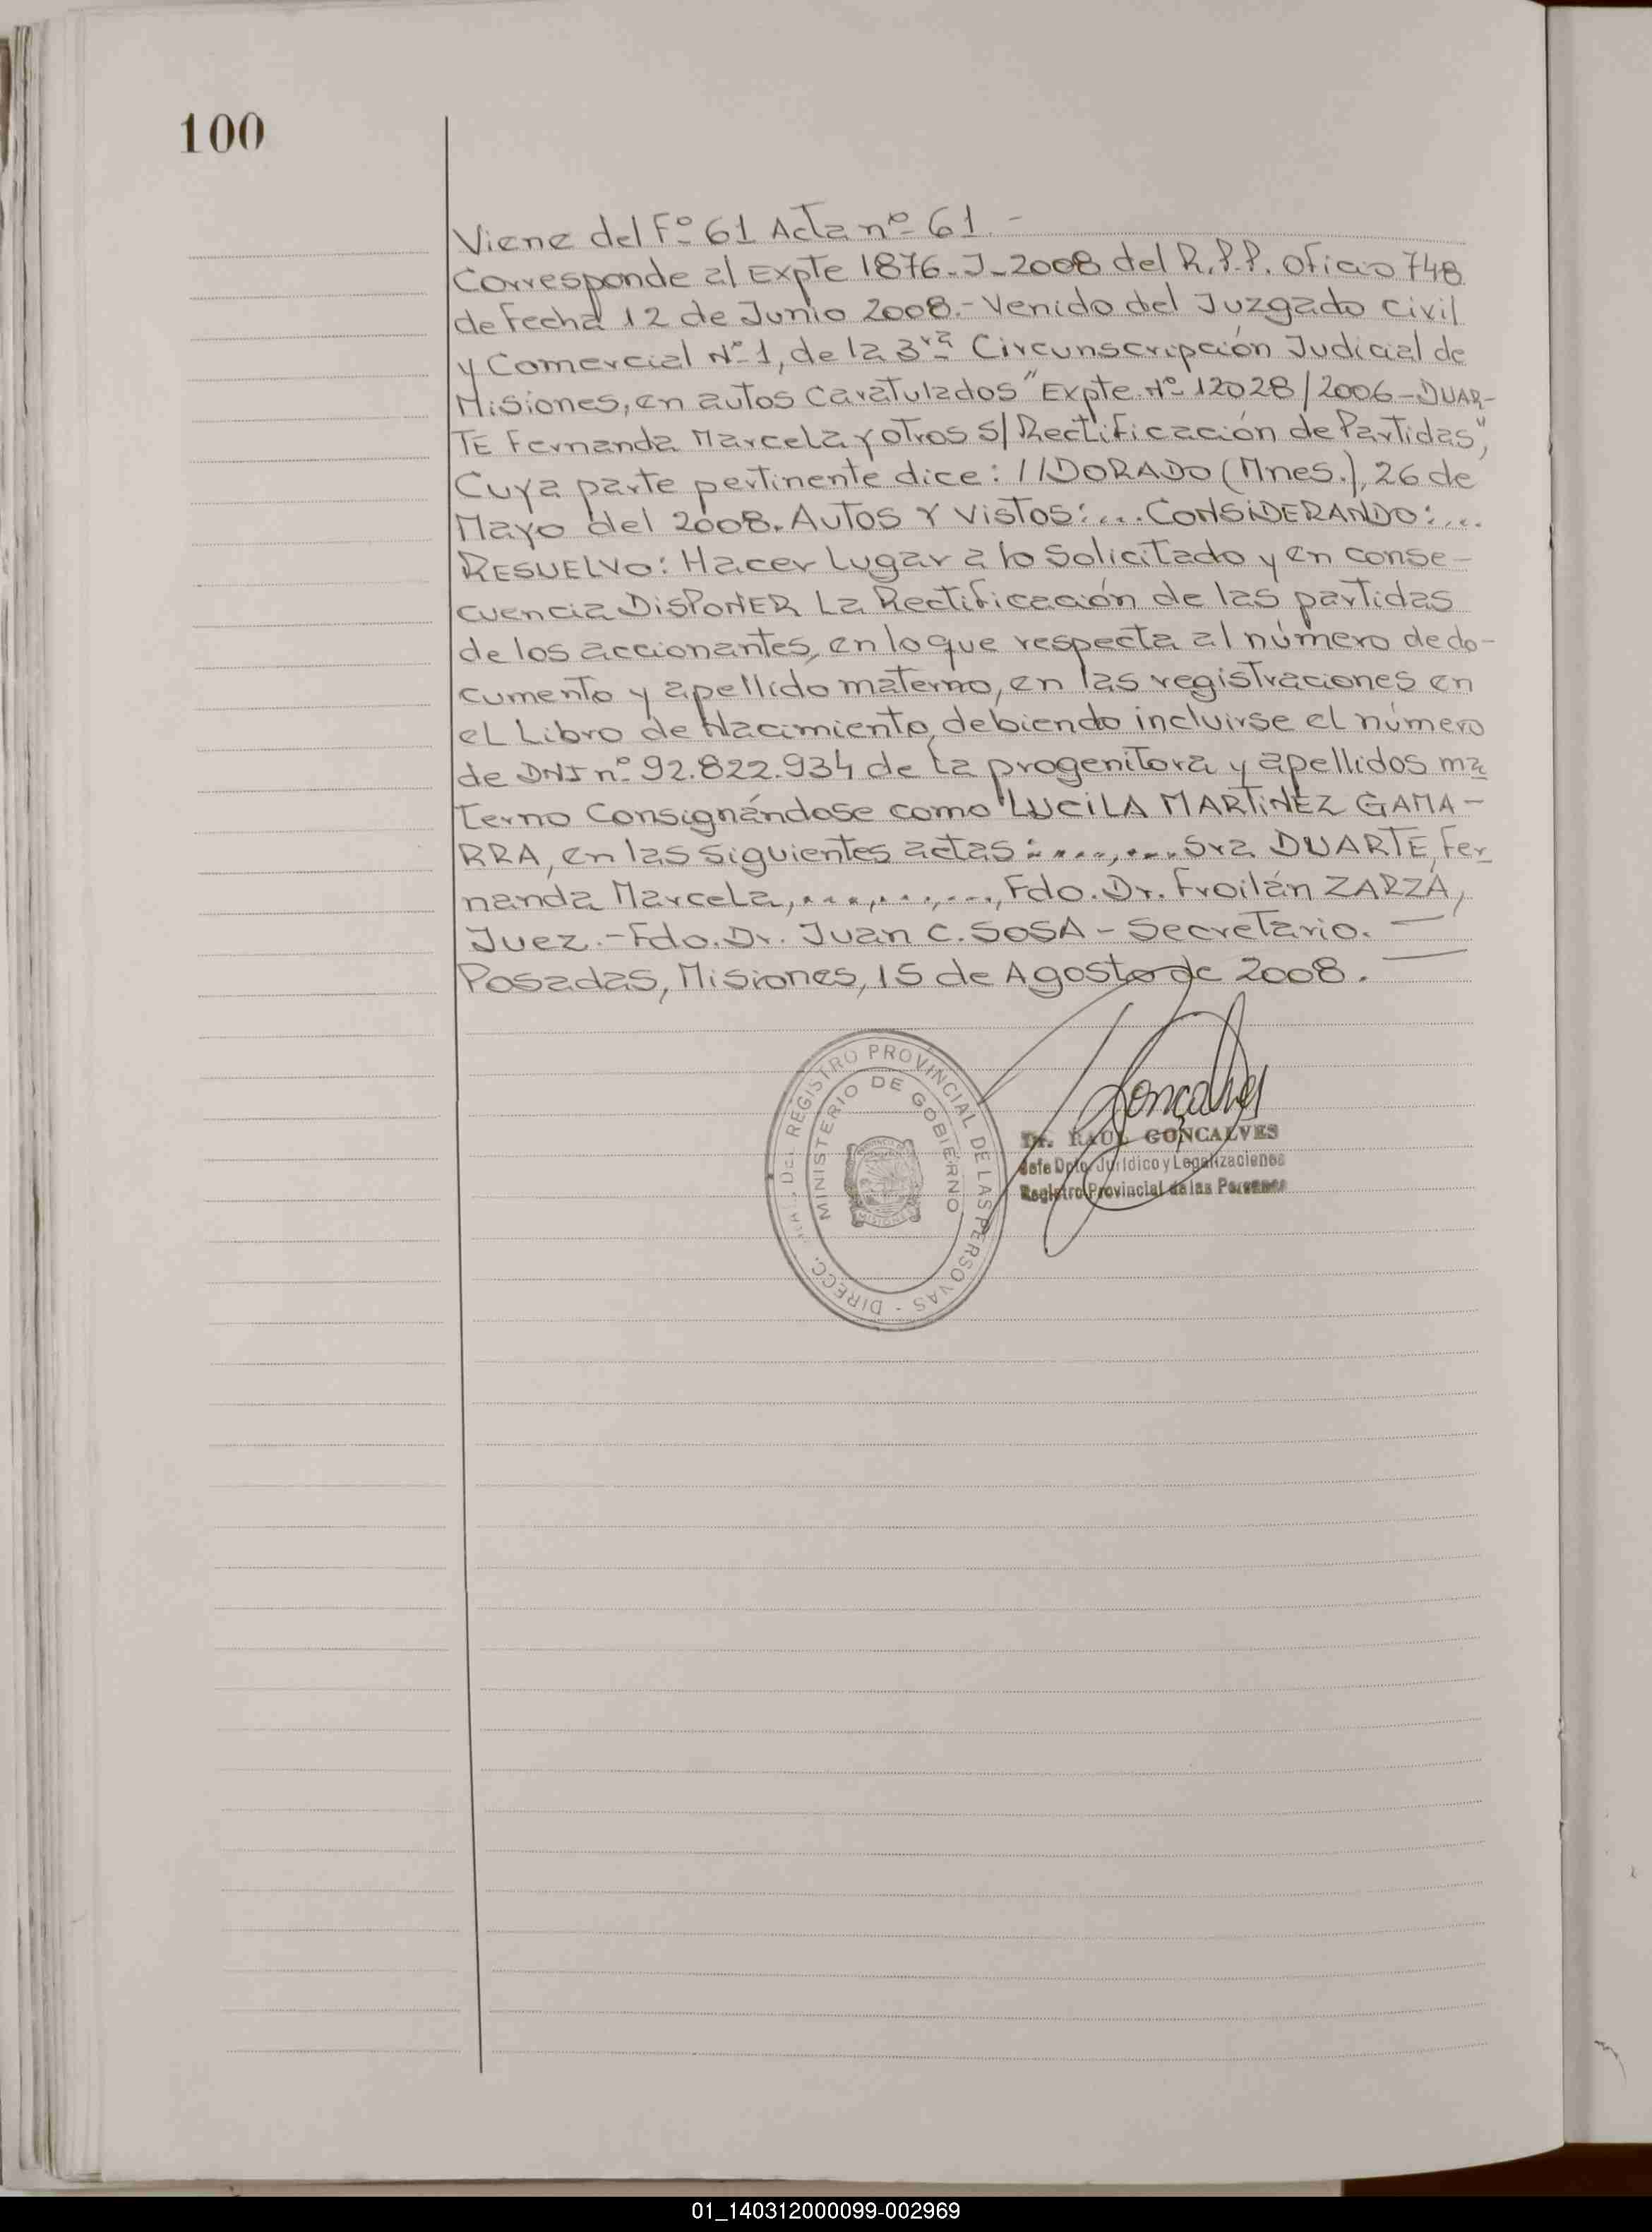 100
Viene del Fº 61 Acta nº 61.-
Corresponde al Expte 1876-J-2008 del R.P.P. oficio 748
de fecha 12 de Junio 2008.- Venido del Juzgado Civil
y Comercial Nº 1, de la 3ra Circunscripción Judicial de
Misiones, en autos caratulados "Expte. Nº 12028/2006-DUAR-
TE Fernanda Marcela y otros s/ Rectificación de Partidas",
Cuya parte pertinente dice: //DORADO (Mnes.), 26 de
Mayo del 2008. Autos Y Vistos:... CONSIDERANDO:...
RESUELVO: Hacer Lugar a lo Solicitado y en conse-
cuencia DISPONER La Rectificación de las partidas
de los accionantes, en lo que respecta al número de do-
cumento y apellido materno, en las registraciones en
el Libro de Nacimiento, debiendo incluirse el número
de DNI nº 92.822.934 de la progenitora y apellidos ma
terno Consignándose como "LUCILA MARTINEZ GAMA-
RRA, en las siguientes actas:....,....Sra DUARTE, Fer
nanda Marcela,....,...,...., Fdo. Dr. Froilán ZARZÁ,
Juez.-Fdo. Dr. Juan C. SOSA - Secretario.
Posadas, Misiones, 15 de Agosto de 2008.
DEL REGISTRO PROVINCIAL DE LAS PERSONAS - DIRECC.
MINISTERIO DE GOBIERNO
MISIONES
Goncalves
Dr. RAUL GONÇALVES
Jefe Dpto. Jurídico y Legalizaciones
Registro Provincial de las Personas
01_140312000099-002969